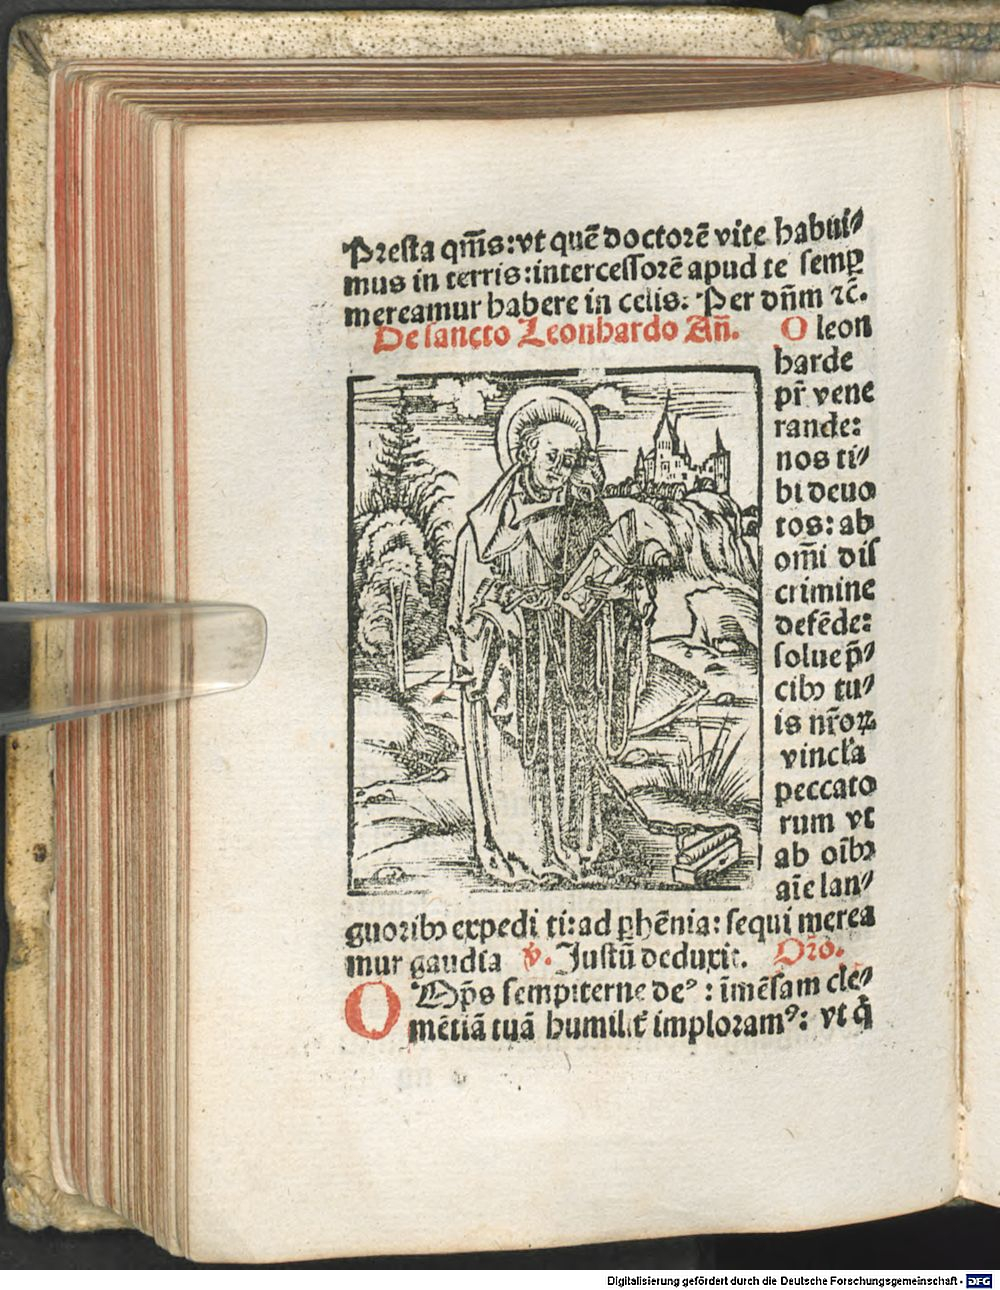 Presta qm̄s: vt quē doctorē vite habui⸗
mus in terris: intercessorē apud te semꝑ
mereamur habere in celis. Per dn̄m ⁊c̄.
De sancto Leonhardo An̄. O leon
harde
pr̄ vene
rande:
nos ti⸗
bi deuo
tos: ab
om̄i dis
crimine
defēde:
solue p̄⸗
cibꝰ tu⸗
is nr̄oꝝ
vincl'a
peccato
rum vt
ab oībꝰ
aīe lan⸗
guoribꝰ expediti: ad ꝑhēnia: sequi merea
mur gaudia ℣. Justū deduxit. Oro.
OMp̄s sempiterne deꝰ: īmēsam cle⸗
mētiā tuā humilit̄ imploramꝰ: vt q̄
Digitalisierung gefördert durch die Deutsche Forschungsgemeinschaft - DFG